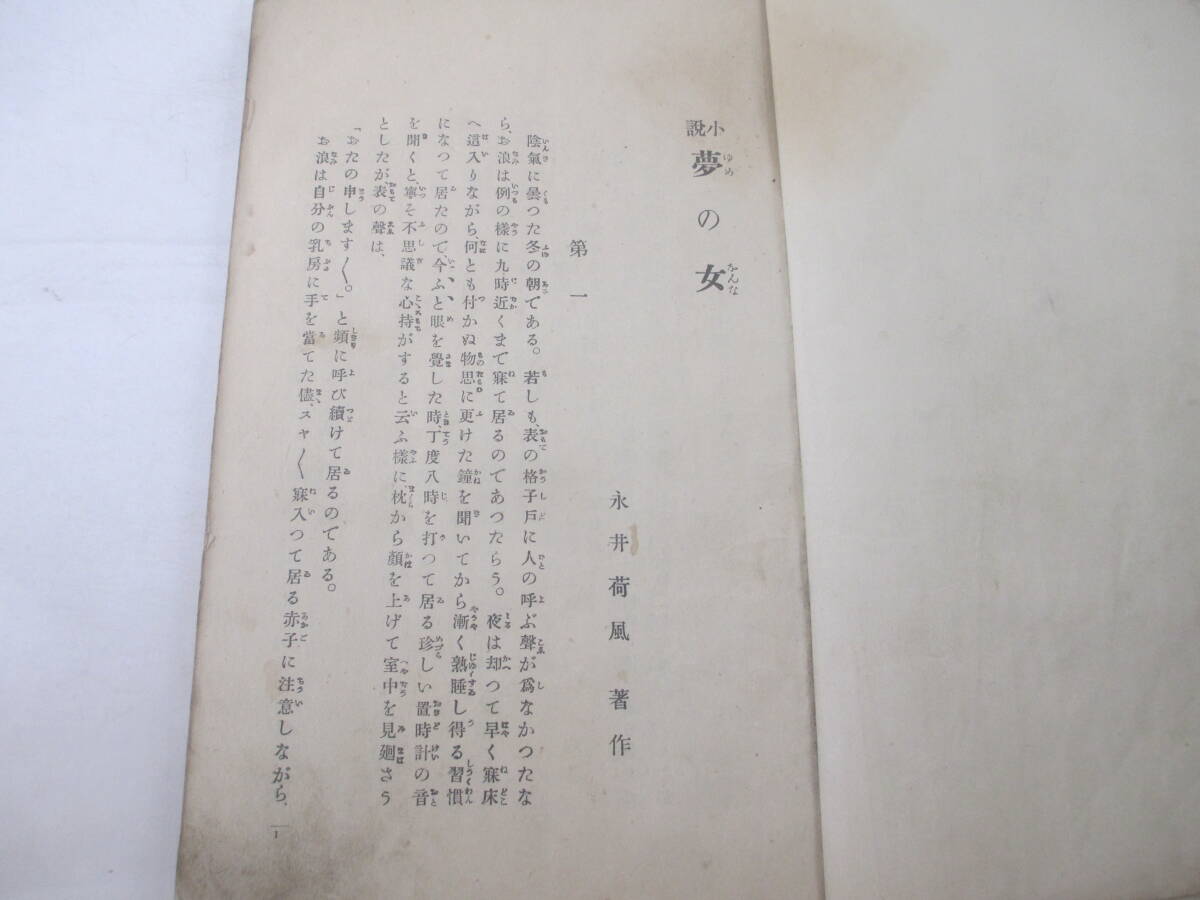 小說 夢の女
永井荷風 著作
第一
陰氣に曇つた冬の朝である。若しも、表の格子戶に人の呼ぶ聲が爲なかつたな
ら、お浪は例の樣に九時近くまで寐て居るのであつたらう。夜は却つて早く寐床
へ這入りながら、何とも付かぬ物思に更けた鐘を聞いてから漸く熟睡し得る習慣
になつて居たので、今ふと眼を覺した時、丁度八時を打つて居る珍しい置時計の音
を聞くと、寧そ不思議な心持がすると云ふ樣に、枕から顏を上げて室中を見廻さう
としたが、表の聲は、
「おたの申します〱。」と頻に呼び續けて居るのである。
お浪は自分の乳房に手を當てた儘、スヤ〱寐入つて居る赤子に注意しながら、
1